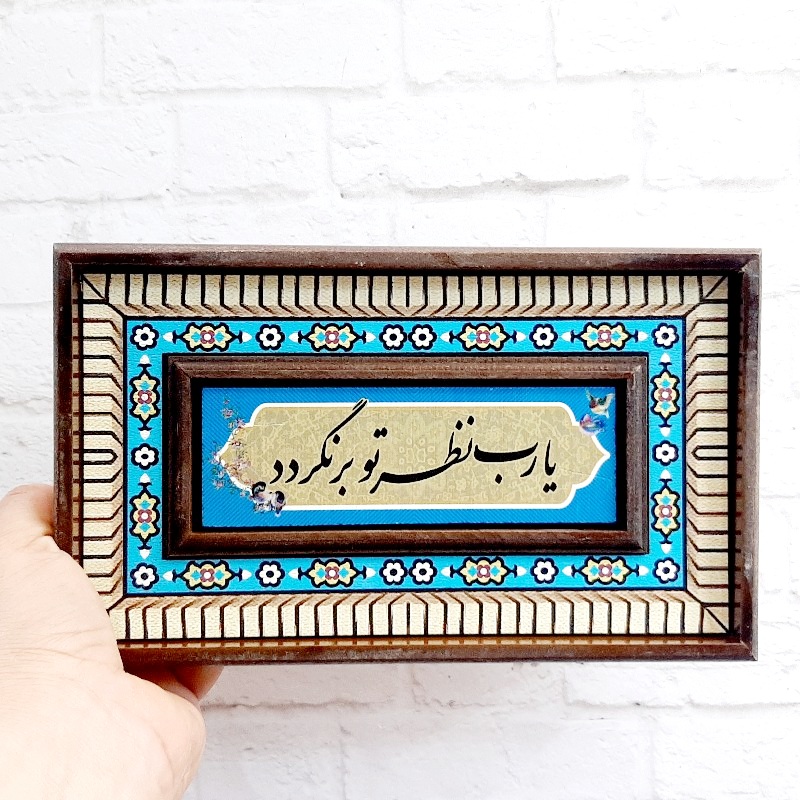 یارب نظر تو برنگردد